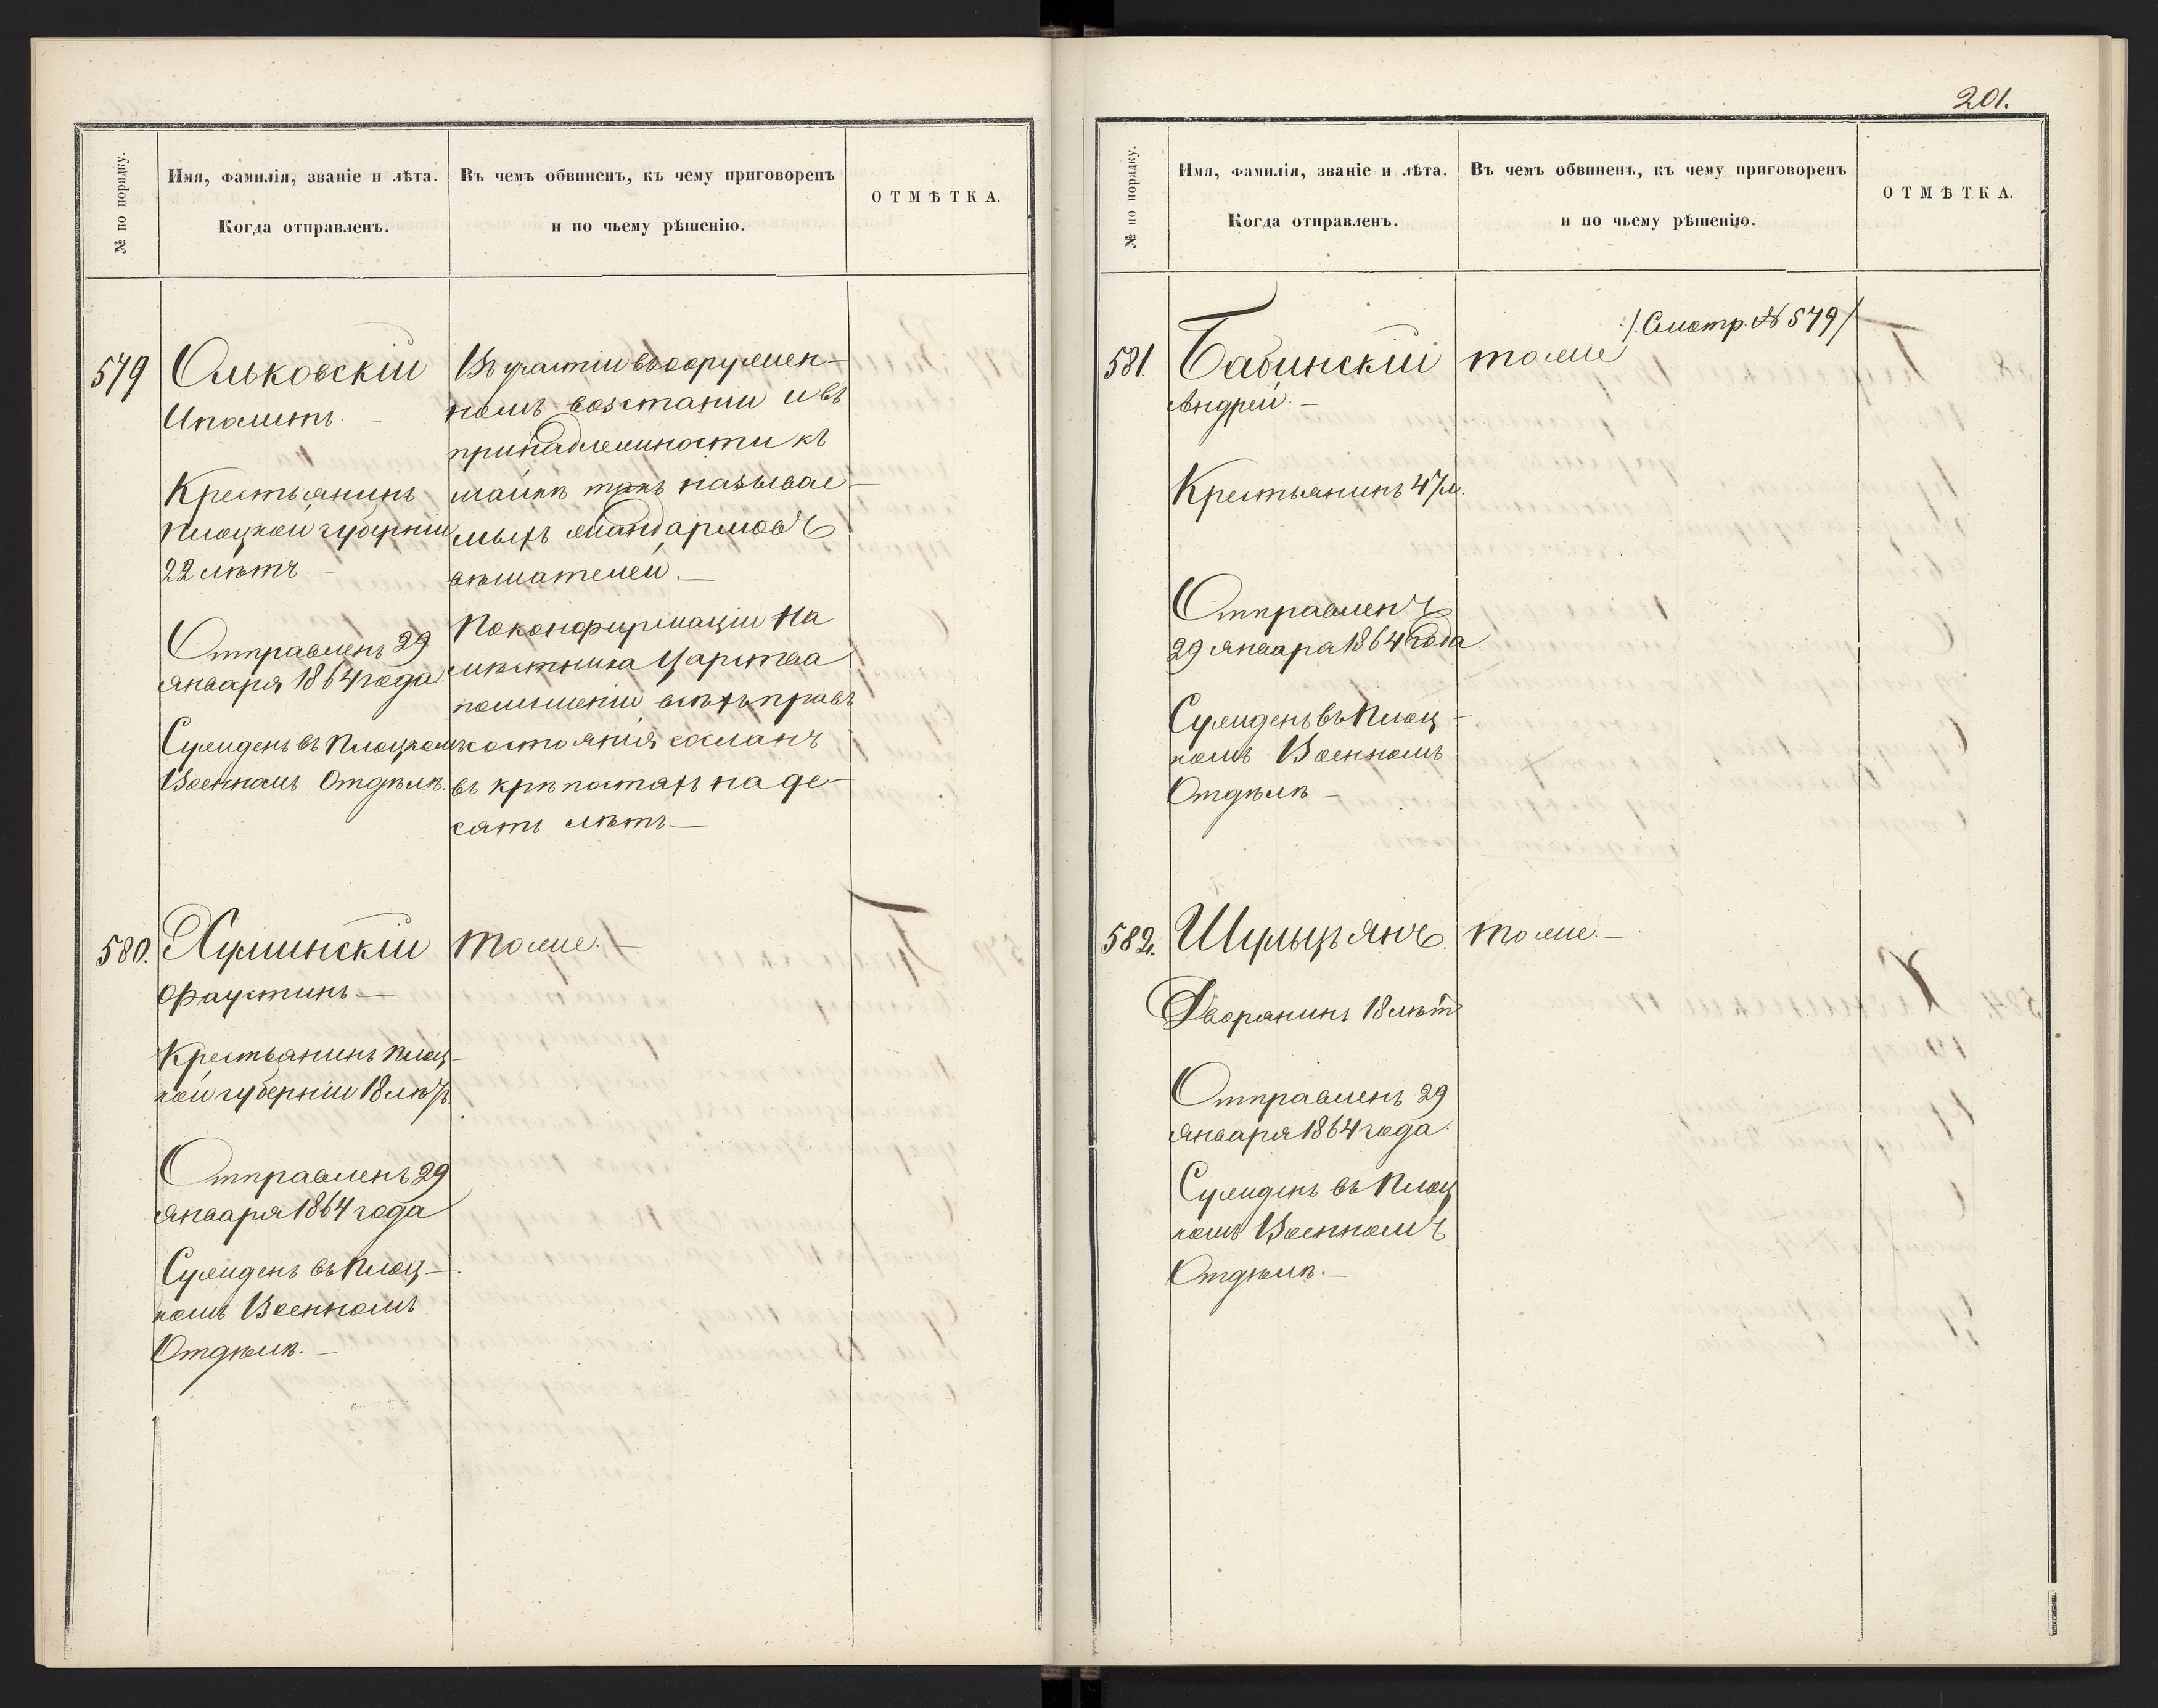 № по порядку.
Имя, фамилія, званіе и лѣта.
Когда отправленъ.
Въ чемъ обвиненъ, къ чему приговоренъ
и по чьему рѣшенію.
ОТМѢТКА.
579
Ольковскій
Иполитъ.
Крестьянинъ
Плоцкой губерніи
22 лѣтъ
Отправленъ 29
Января 1864 года.
Сужиденъ въ Плоцкомъ
Военномъ Отдѣлѣ.
Въ участіи въ вооружен-
номъ возстаніи и въ
принадлежности къ
шайкѣ такъ называе-
мыхъ жандармовъ
вѣшателей.—
По конфирмаціи На
мѣстника Царства
по лишеніи всѣхъ правъ
состоянія сосланъ
въ крѣпостяхъ на де-
сять лѣтъ—
580.
Хуминскій
Фаустинъ.—
Крестьянинъ Плоц-
кой губерніи 18 лѣтъ.
Отправленъ 29
Января 1864 года
Сужиденъ въ Плоц-
комъ Военномъ
Отдѣлѣ.—
тоже.—
201.
№ по порядку.
Имя, фамилія, званіе и лѣта.
Когда отправленъ.
Въ чемъ обвиненъ, къ чему приговоренъ
и по чьему рѣшенію.
ОТМѢТКА.
/Смотр. № 579/
581.
Бабинскій
Андрей.—
Крестьянинъ 47 л.
Отправленъ
29 Января 1864 года
Сужиденъ въ Плоц-
комъ Военномъ
Отдѣлѣ—
тоже
582.
Шульцъ Янъ.
Дворянинъ 18 лѣтъ
Отправленъ 29
Января 1864 года.
Сужиденъ въ Плоц
комъ Военномъ
Отдѣлѣ.—
тоже.—